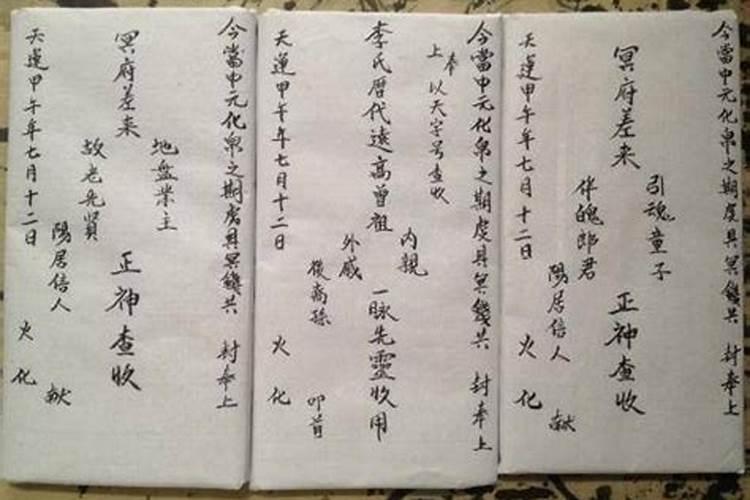 今當中元化帛之期虔具冥錢共 封奉上
冥府差来 引魂童子 伴魄郎君 正神查收
陽居信人 献
天運甲午年七月十二日 火化
今當中元化帛之期虔具冥錢共 封奉上
奉上 以天字号查收
李氏暦代遠高曾祖 内親 外戚 一脉先靈收用
後裔孫 叩首
天運甲午年七月十二日 火化
今當中元化帛之期虔具冥錢共 封奉上
冥府差来 地盘業主 故老先賢 正神查收
陽居信人 献
天運甲午年七月十二日 火化